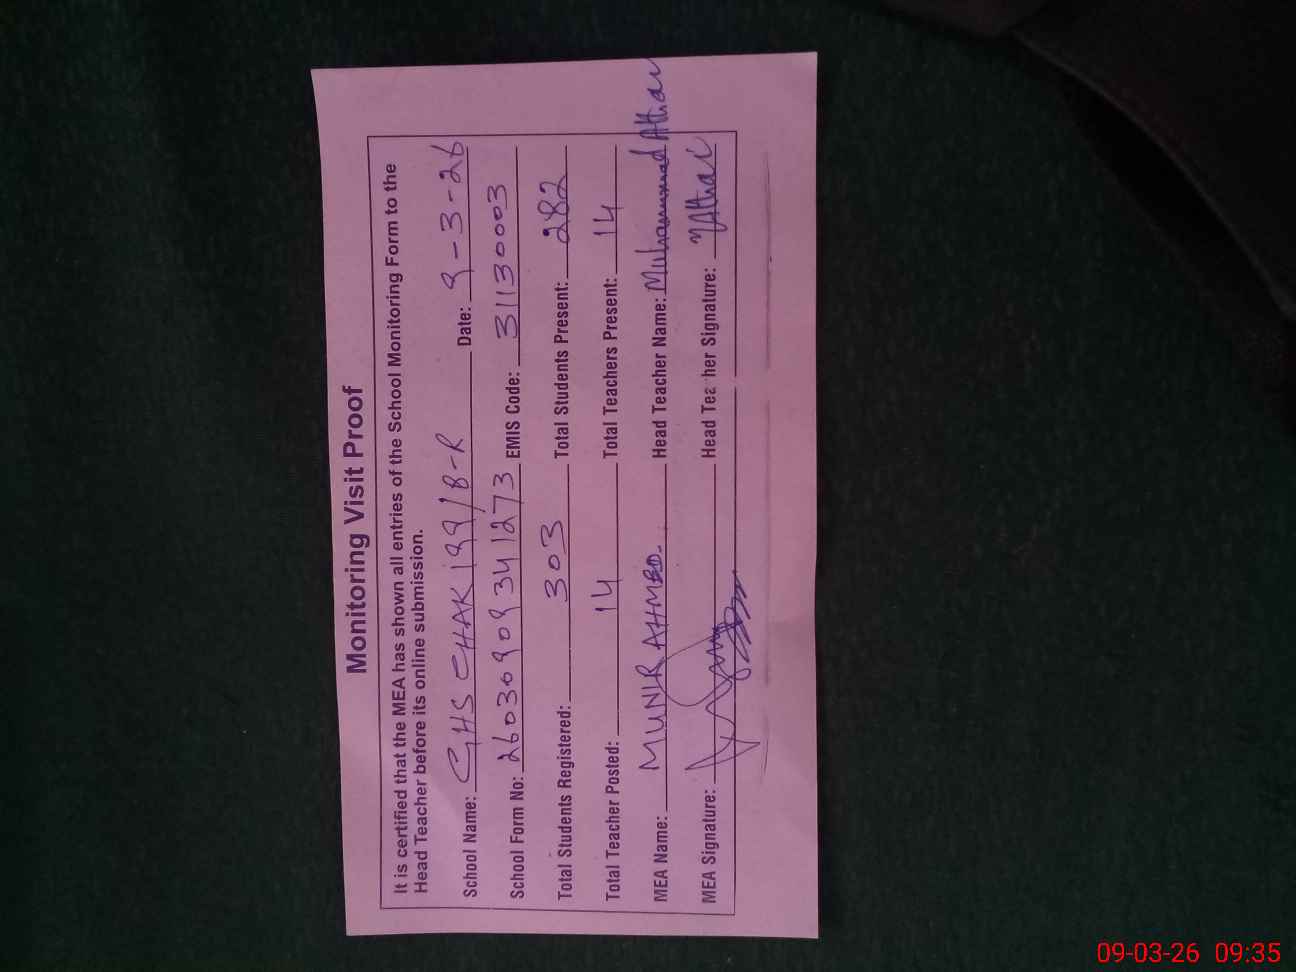 Monitoring Visit Proof
It is certified that the MEA has shown all entries of the School Monitoring Form to the
Head Teacher before its online submission.
School Name: GHS CHAK 199/8-R Date: 9-3-26
School Form No: 26030909341273 EMIS Code: 31130003
Total Students Registered: 303 Total Students Present: 282
Total Teacher Posted: 14 Total Teachers Present: 14
MEA Name: MUNIR AHMED Head Teacher Name: Muhammad Athar
MEA Signature: Head Teacher Signature: MAthar
09-03-26 09:35